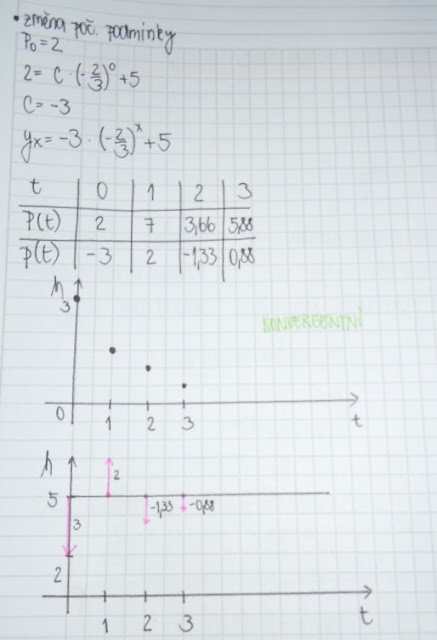 • změna poč. podmínky
P₀ = 2
2 = C · (-2/3)⁰ + 5
C = -3
yx = -3 · (-2/3)ˣ + 5
t 0 1 2 3
P(t) 2 7 3,66 5,88
p(t) -3 2 -1,33 0,88
h
3
KONVERGENTNÍ
0 1 2 3 t
h
2
5
3 -1,33 -0,88
2
1 2 3 t